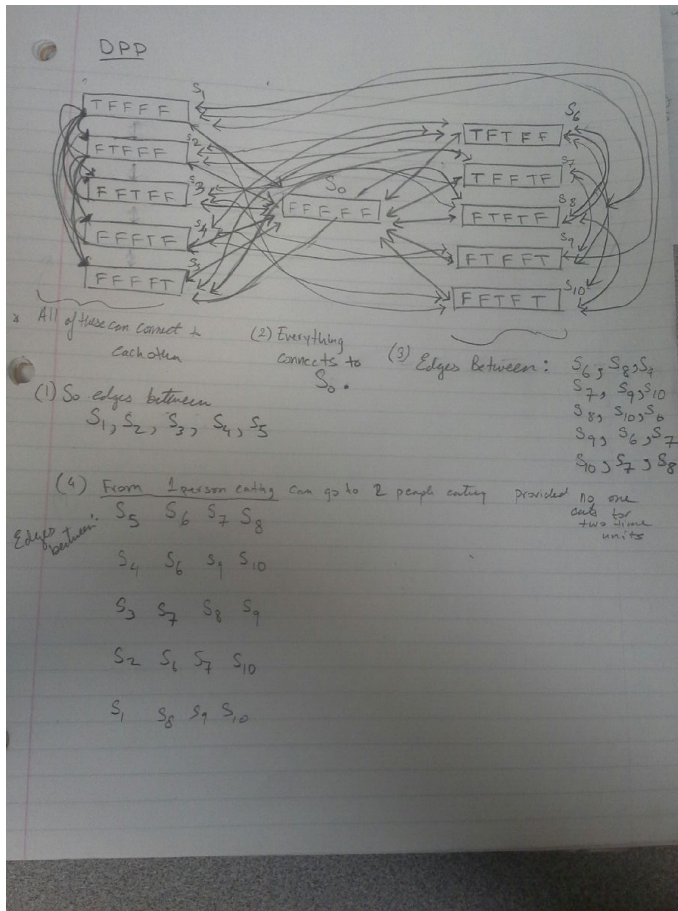 DPD
S1
TFFFF
S6
TFTFF
S2
FTFFF
S7
TFFTF
S3
FFTFF
S0
FFFFF
S8
FTFTF
S4
FFFTF
S9
FTFFT
S5
FFFFT
S10
FFTFT
* All of these can connect to
each other
(2) Everything
connects to
S0.
(3) Edges Between:
S6, S8, S9
S7, S9, S10
S8, S10, S6
S9, S6, S7
S10, S7, S8
(1) So edges between
S1, S2, S3, S4, S5
(4) From 1 person eating can go to 2 people eating provided no one
eats for
two time
units
Edges
between:
S5 S6 S7 S8
S4 S6 S9 S10
S3 S7 S8 S9
S2 S6 S7 S10
S1 S8 S9 S10